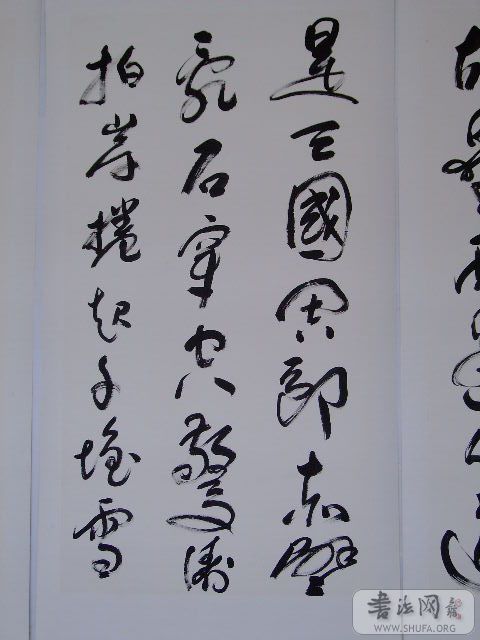 故壘西邊人道
是三國周郎赤壁
亂石穿空驚濤
拍岸捲起千堆雪
書法网
WWW.SHUFA.ORG